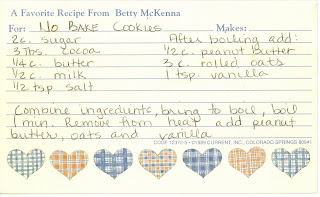 A Favorite Recipe From Betty McKenna
For: No Bake Cookies Makes:
2c. sugar After boiling add:
3 Tbs. cocoa 1/2 c. peanut butter
1/4 c. butter 3 c. rolled oats
1/2 c. milk 1 tsp. vanilla
1/2 tsp salt
Combine ingredients, bring to boil, boil
1 min. Remove from heat add peanut
butter, oats and vanilla
CODE 12372-5 · ©1989 CURRENT, INC., COLORADO SPRINGS 80941